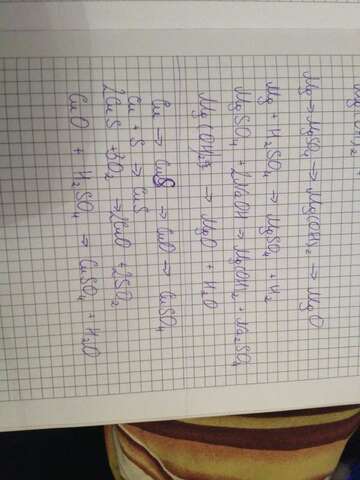 Mg → MgSO₄ → Mg(OH)₂ → MgO
Mg + H₂SO₄ → MgSO₄ + H₂
MgSO₄ + 2NaOH → Mg(OH)₂ + Na₂SO₄
Mg(OH)₂ → MgO + H₂O
Cu → CuS → CuO → CuSO₄
Cu + S → CuS
2CuS + 3O₂ → 2CuO + 2SO₂
CuO + H₂SO₄ → CuSO₄ + H₂O